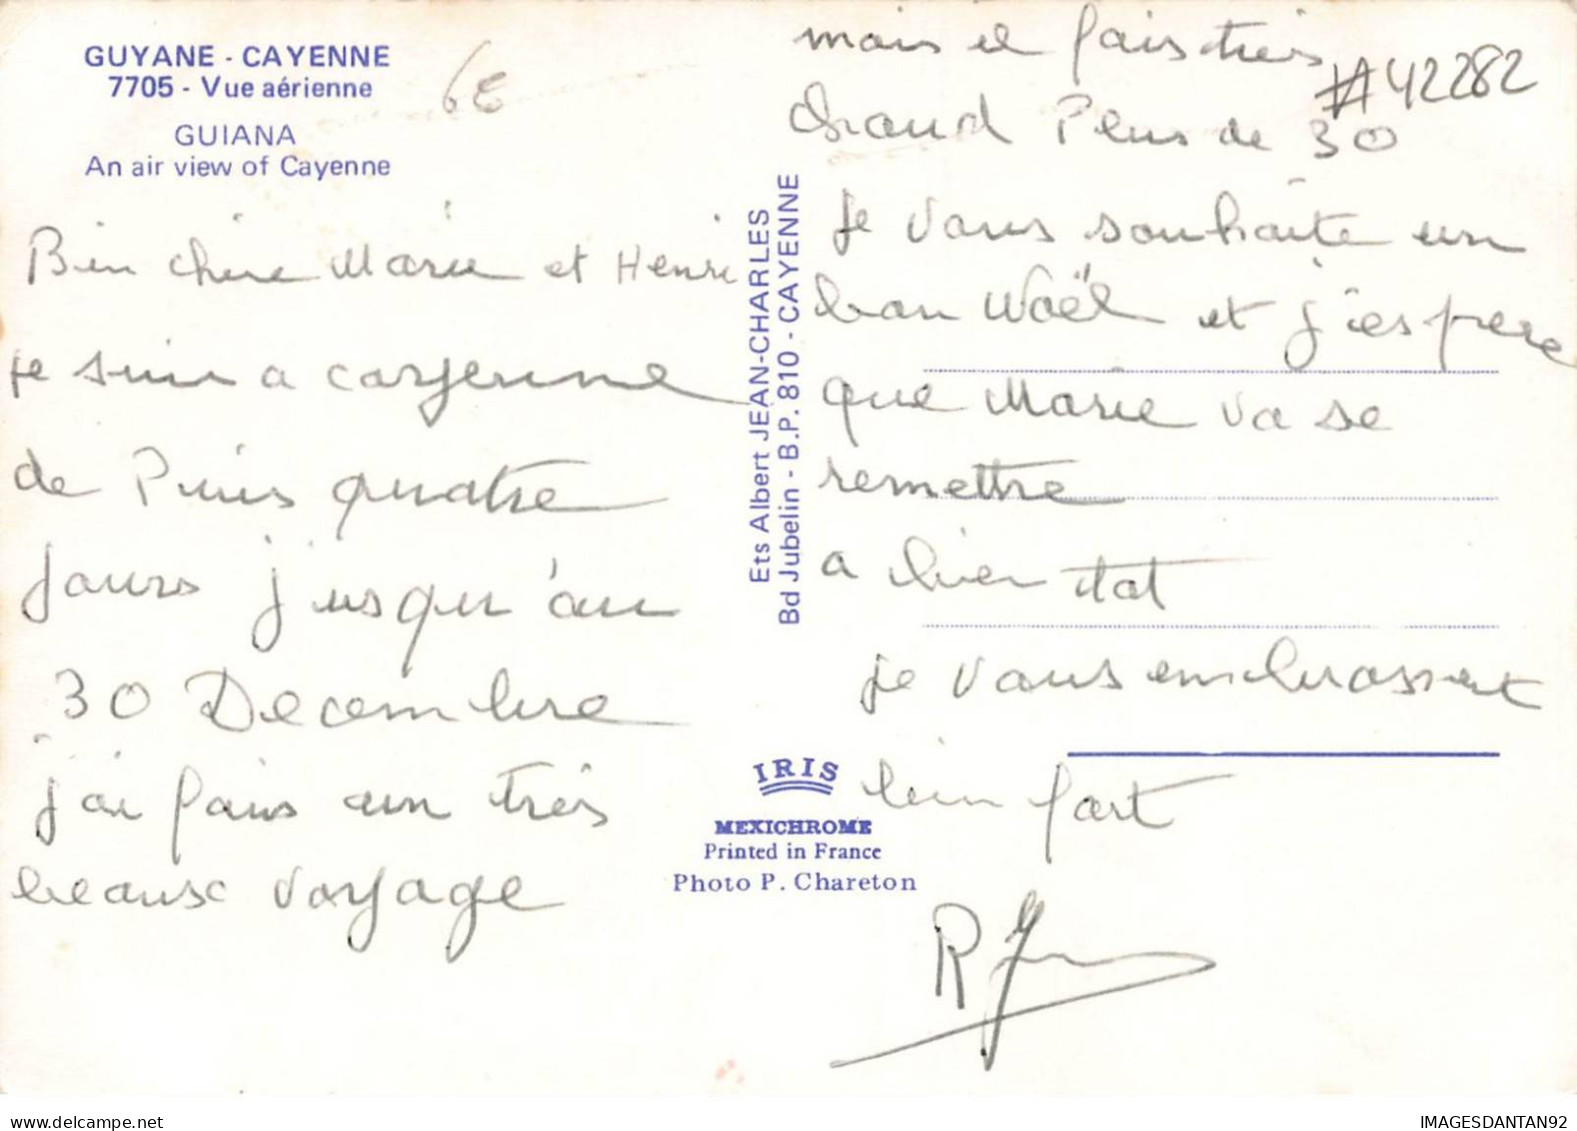 GUYANE - CAYENNE
7705 - Vue aérienne
GUIANA
An air view of Cayenne
6E
Bien chere Marie et Henri
je suis a cayenne
de Puis quatre
Jours jusqu'au
30 Decembre
j'ai fais un très
beaux voyage
Ets Albert JEAN-CHARLES
Bd Jubelin - B.P. 810 - CAYENNE
IRIS
MEXICHROME
Printed in France
Photo P. Chareton
mais il fais tres
#42282
chaud Plus de 30
Je vous souhaite un
bon Noël et j'espere
que Marie va se
remettre
a bien tot
je vous embrassent
bien fort
R
delcampe.net
IMAGESDANTAN92